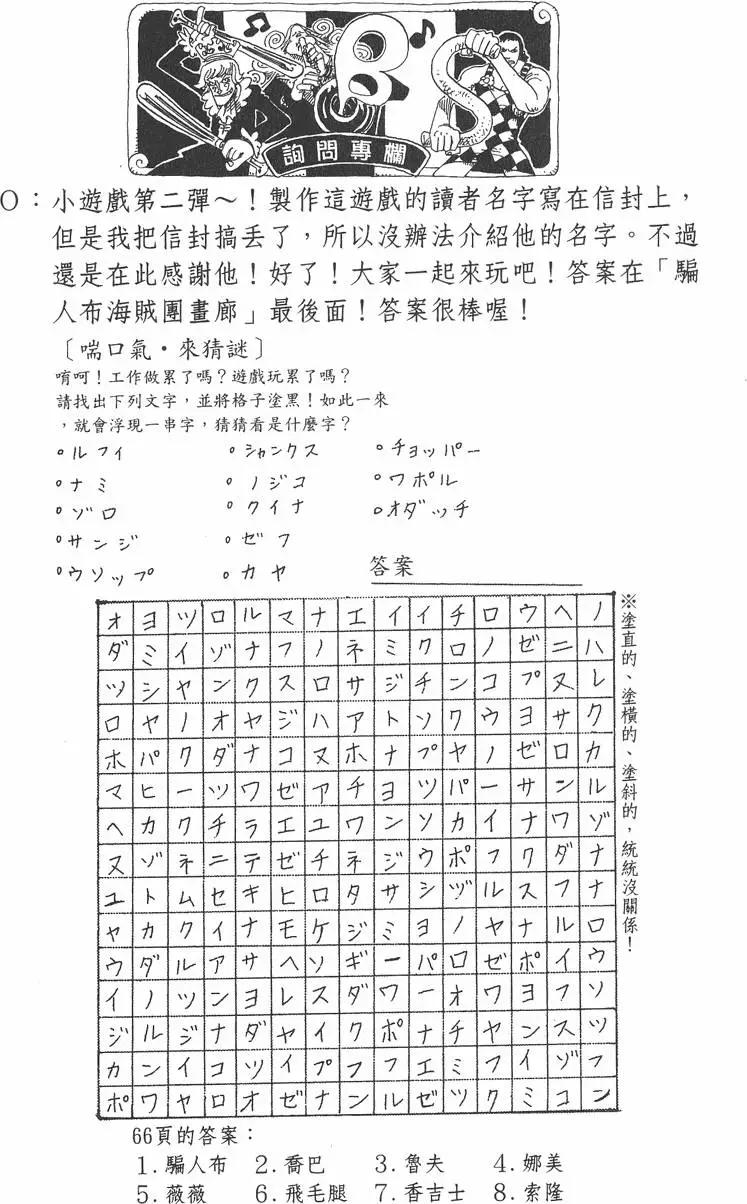 SBS
詢問專欄
O：小遊戲第二彈～！製作這遊戲的讀者名字寫在信封上，
但是我把信封搞丟了，所以沒辦法介紹他的名字。不過
還是在此感謝他！好了！大家一起來玩吧！答案在「騙
人布海賊團畫廊」最後面！答案很棒喔！
〔喘口氣・來猜謎〕
唷呵！工作做累了嗎？遊戲玩累了嗎？
請找出下列文字，並將格子塗黑！如此一來
，就會浮現一串字，猜猜看是什麼字？
。ルフィ 。シャンクス 。チョッパー
。ナミ 。ノジコ 。ワポル
。ゾロ 。クイナ 。オダッチ
。サンジ 。ゼフ
。ウソップ 。カヤ 答案
オヨツロルマナエイイチロウヘノ
ダミイゾナフノネミクロノゼニハ
ツシャンクスロサジチンコプヌレ
ロヤノオヤジハアトソクウヨサク
ホパクダナコヌホナプヤノゼロカ
マヒーツワゼアチョツパーサンル
ヘカクチラエユワンソカイナワゾ
ヌゾネニテゼチネジウポフクダナ
ユトムセキヒロタサシヅルスフナ
ヤカクイナモケジミヨノヤナルロ
ウダルアサヘソギーパロゼポイウ
イノツンヨレスダワーオワヨフソ
ジルジナダヤイクポナチヤンスツ
カンイコツイプフフエミフイゾフ
ポワヤロオゼナンルゼツクミコン
※塗直的、塗橫的、塗斜的，統統沒關係！
66頁的答案：
1.騙人布 2.喬巴 3.魯夫 4.娜美
5.薇薇 6.飛毛腿 7.香吉士 8.索隆